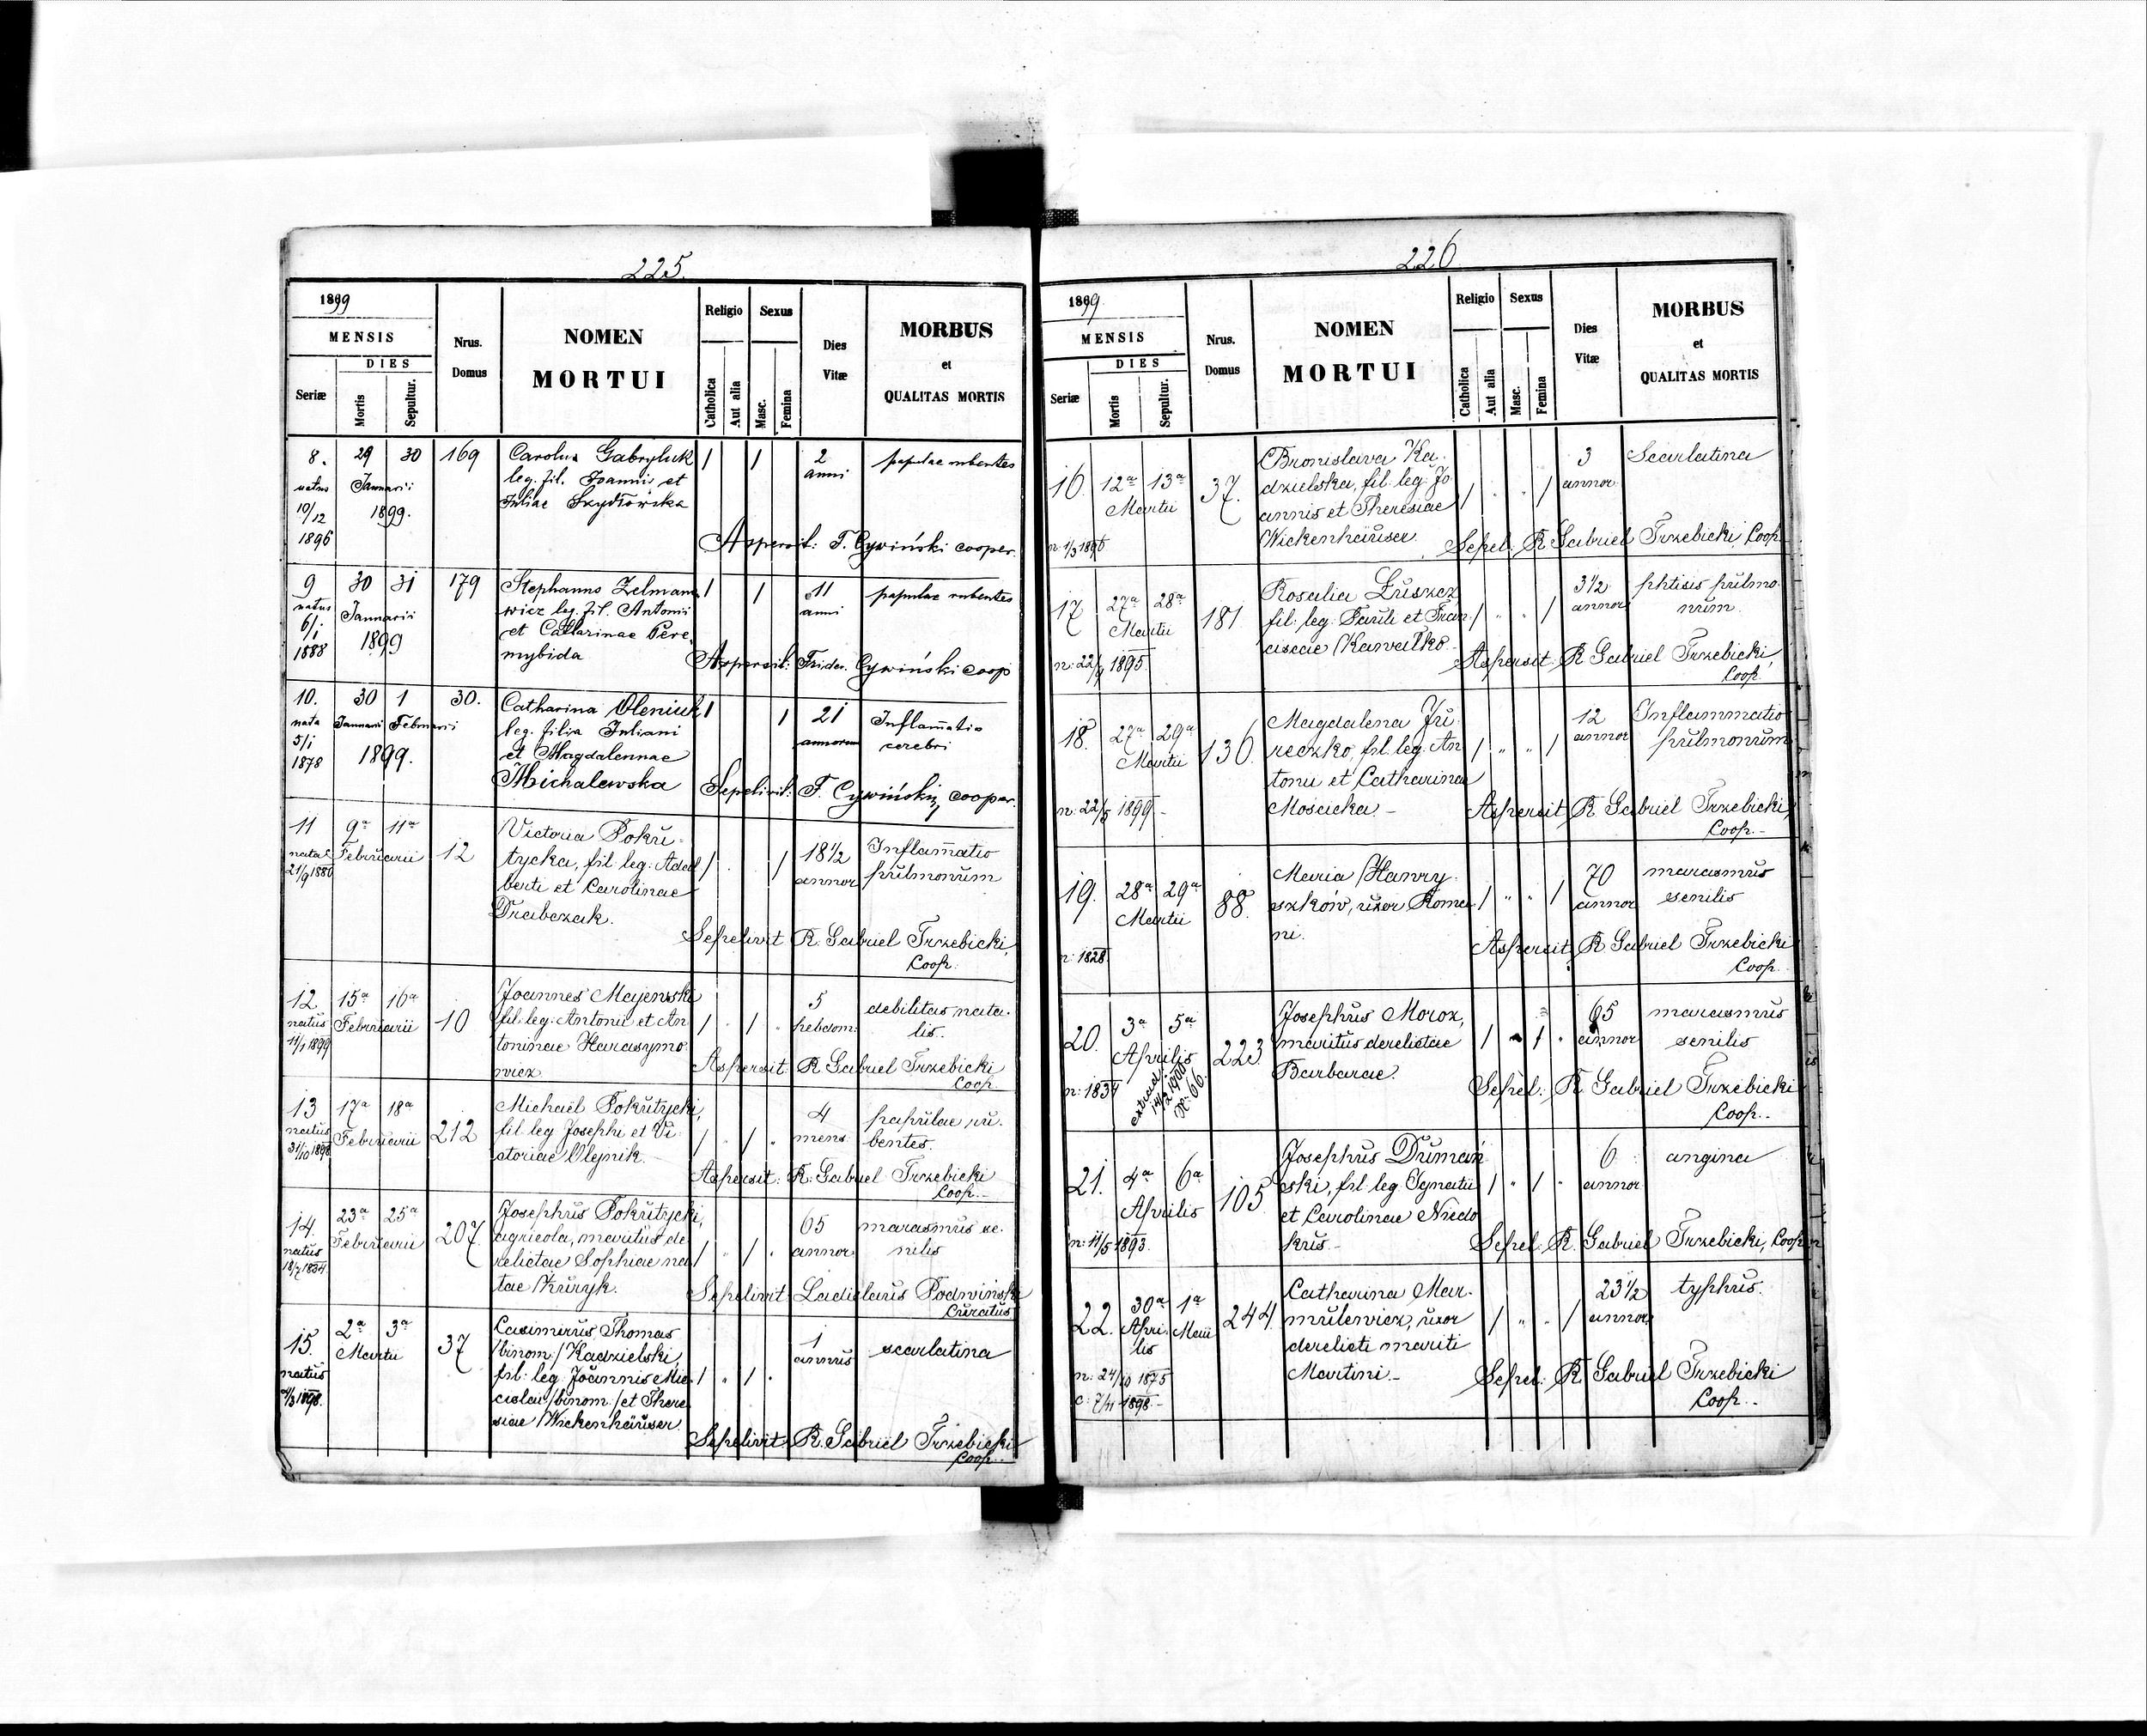 225.
1899
MENSIS
DIES
Seriæ
Mortis
Sepultur.
Nrus.
Domus
NOMEN
MORTUI
Religio
Catholica
Aut alia
Sexus
Masc.
Femina
Dies
Vitæ
MORBUS
et
QUALITAS MORTIS
8. 29 30 169 Carolus Gabryluk / / 2 papulae rubentes
natus Januarii leg. fil. Joannis et anni
10/12 1899. Juliae Szydłowska
1896 Aspersit: F. Cywiński cooper.
9 30 31 179 Stephanus Zelmano / / 11 papulae rubentes
natus Januarii wicz leg. fil. Antonii anni
6/1 1899 et Catharinae Pere
1888 mybida Aspersit: Frider. Cywiński coop
10. 30 1 30. Catharina Oleniuk / / 21 Inflam̄atio
nata Januarii Februarii leg. filia Juliani annorum cerebri
5/1 1899. et Magdalennae
1878 Michalewska Sepelivit: F. Cywiński, cooper.
11 9a 11a 12 Victoria Pokru- 18 1/2 Inflam̄atio
nata Februarii tycka, fil leg: Adal / / annor pulmonum
21/9 1880 berti et Carolinae
Drabczak.
Sepelivit R. Gabriel Trzebicki,
Coop.
12 15a 16a 10 Joannes Majewski 5 debilitas nata-
natus Februarii fil: leg: Antonii et An / / hebdom: lis.
11/1 1899 toninae Harasymo
wicz Aspersit: R Gabriel Trzebicki
Coop
13 17a 18a 212 Michaël Pokrutycki, 4 papulae ru-
natus Februarii fil leg Josephi et Vi / / mens bentes.
31/10 1898 ctoriae Olejnik.
Aspersit: R: Gabriel Trzebicki
Coop.
14. 23a 25a 207 Josephus Pokrutycki, 65 marasmus se-
natus Februarii agricola, maritus de / / annor nilis
18/7 1834 relictae Sophiae na
tae Kuryk. Sepelivit: Ladislaus Podwiński
Curatus
15. 2a 3a 37 Casimirus Thomas 1 scarlatina
natus Martii /binom:/ Kadzielski, annus
4/3 1898. fil: leg: Joannis Mie / /
cislai /binom:/ et There
siae Wickenhäuser.
Sepelivit: R. Gabriel Trzebicki
Coop.
226
1899
MENSIS
DIES
Seriæ
Mortis
Sepultur.
Nrus.
Domus
NOMEN
MORTUI
Religio
Catholica
Aut alia
Sexus
Masc.
Femina
Dies
Vitæ
MORBUS
et
QUALITAS MORTIS
16. 12a 13a 37. Bronislava Ka- 3 Scarlatina
Martii dzielska, fil. leg. Jo / / annor
annis et Theresiae
n: 1/3 1896 Wickenhäuser Sepel: R Gabriel Trzebicki, Coop
17 27a 28a 181 Rosalia Łuszcz 3 1/2 phtisis pulmo-
Martii fil: leg: Pauli et Fran / / annor num.
ciscae Kawałko
n: 22/9 1895. Aspersit: R Gabriel Trzebicki,
Coop.
18. 27a 29a 136. Magdalena Ju- 12 Inflammatio
Martii reczko, fil. leg: An / / annor pulmonum
tonii et Catharinae
n: 22/5 1899 - Moscicka. - Aspersit R Gabriel Trzebicki,
Coop. -
19. 28a 29a 88. Maria Hawry- 70 marasmus
Martii szków, uxor Roma / / annor senilis
ni.
n: 1828. Aspersit R Gabriel Trzebicki
Coop.
20. 3a 5a 223 Josephus Moroz, 65 marasmus
Aprilis maritus derelictae / / annor senilis
Barbarae.
n: 1834 extrad. 14/2 1900 N: 66. Sepel: R. Gabriel Trzebicki
Coop. -
21. 4a 6a 105 Josephus Dumań 6 angina
Aprilis ski, fil leg Ignatii / / annor
et Carolinae Niedo
n: 11/5 1893. krus - Sepel: R. Gabriel Trzebicki, Coop
22. 30a 1a 244 Catharina Mar- 23 1/2 typhus.
Aprilis Maii mulewicz, uxor / / annor
derelicti mariti
n: 24/10 1875 Martini. - Sepel: R. Gabriel Trzebicki
c: 7/11 1898 - Coop. -